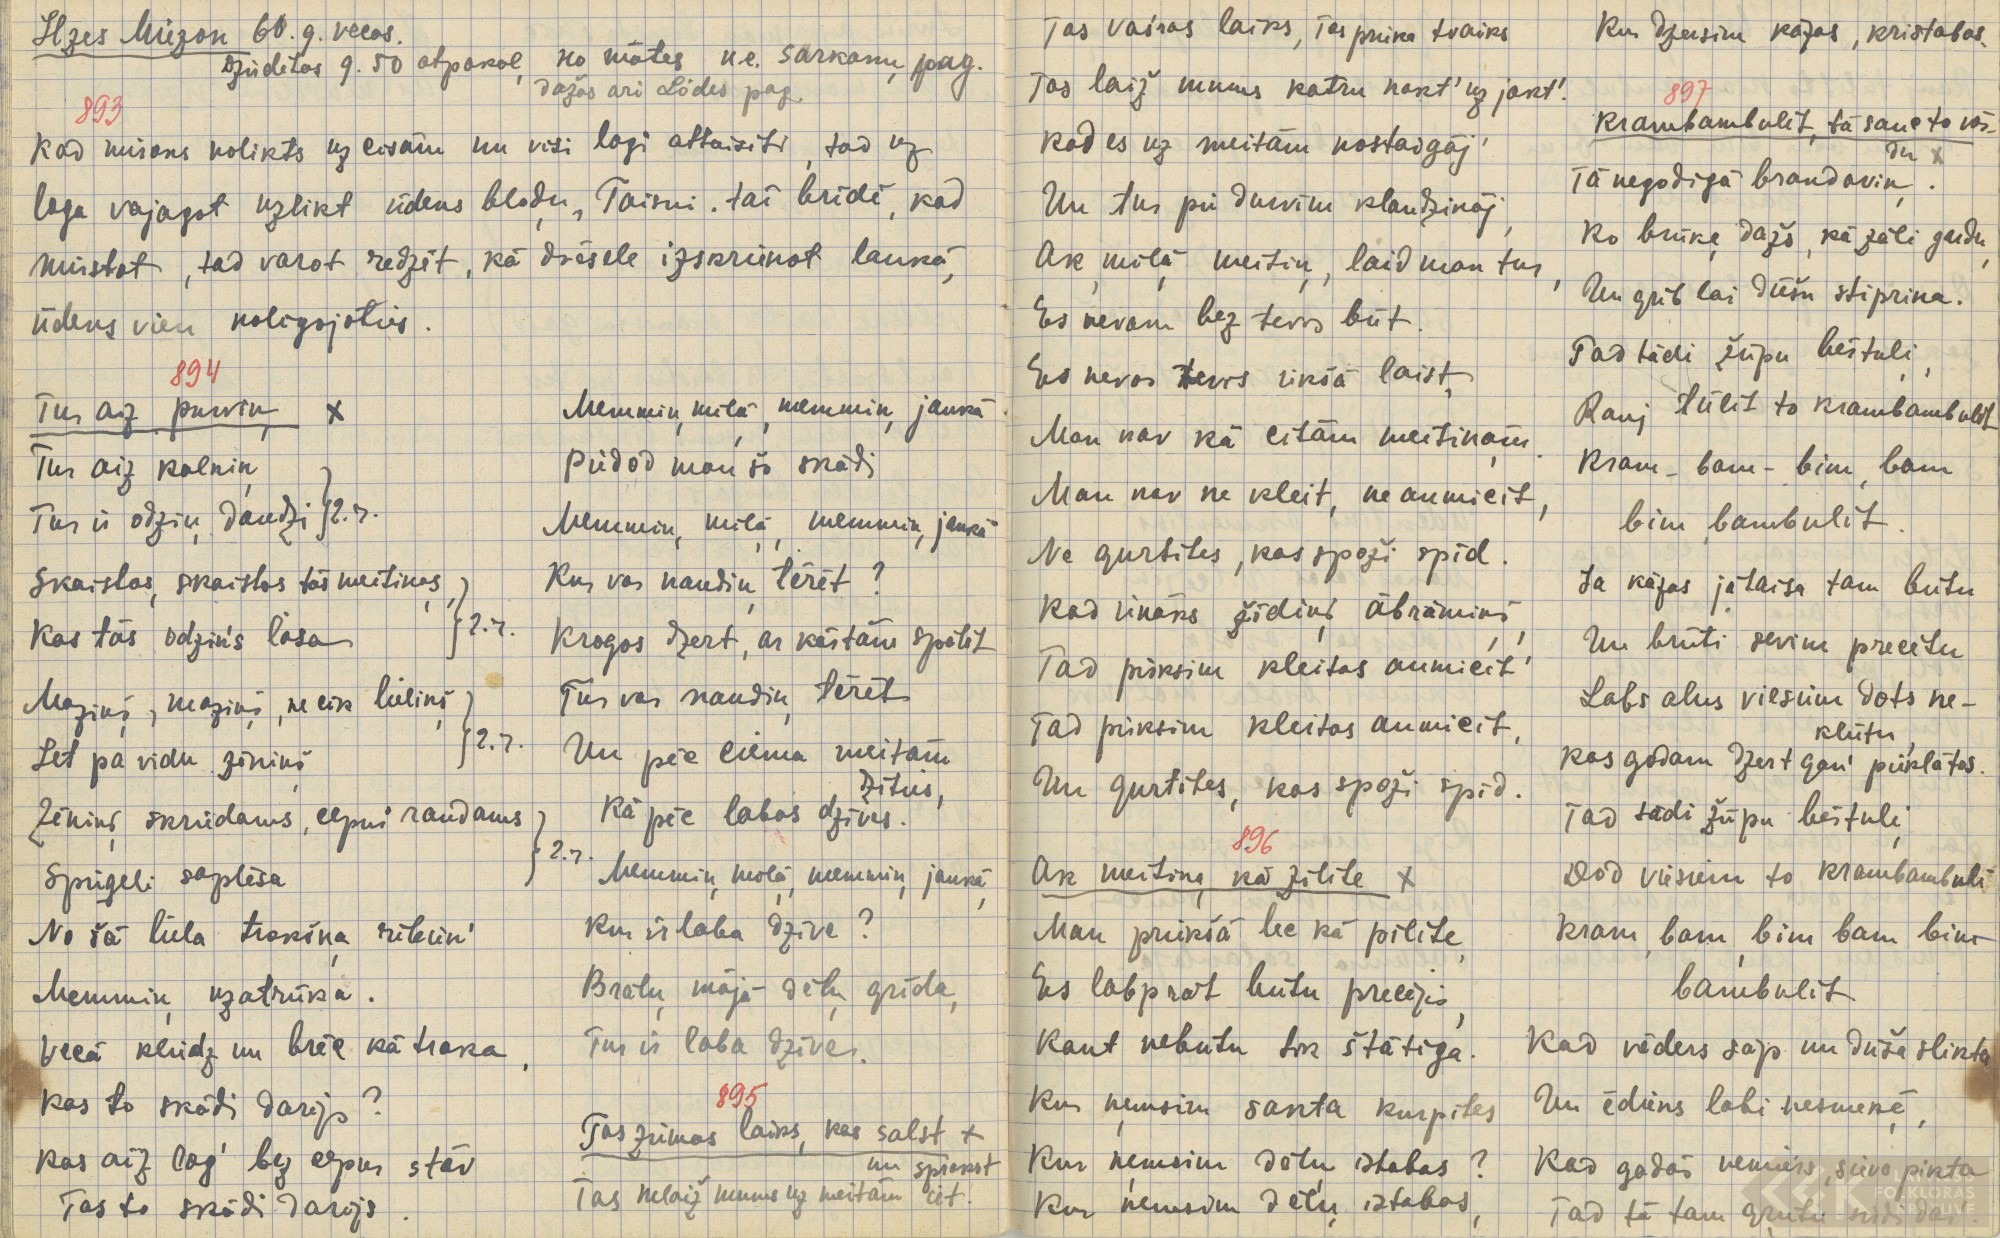 Ilzes Mūzon 60. g. vecas.
Dzīdētas g. 50 atpakaļ, no mātes ne. Sarkaņu pag.
dažas arī Lōdes pag.
893
Kad mirons nolikts uz cisām un visi logi attaisīti, tad uz
loga vajagot uzlikt ūdens blodu, Taisni tai brīdī, kad
mirstot, tad varot redzēt, kā dvēsele izskrienot laukā,
ūdens vien noligojoties.
894
Tur aiz purviņ x
Tur aiz kalniņ
Tur ir odziņ daudzi } 2. r.
Skaistas, skaistas tās meitiņas,
Kas tās odziņs lasa } 2. r.
Maziņi, maziņi, ne cik lieliņi
Let pa vidu zēniņi } 2. r.
Zēniņi skriedams, cepuri raudams
Spieģeli saplēsa } 2. r.
No šā liela trokšņa
Memmiņ uzatrūka.
Vecā kliedz un brēc kā traka,
Kas to skādi darīja?
Kas aiz log' bez cepur stāv
Tas to skādi darījs.
Memmiņ, milā, memmiņ, jaukā
Piedod man šo skādi
Memmiņ, milā, memmiņ, jaukā
Kur var naudiņ tērēt?
Krogos dzert, ar kārtām spēlēt
Tur var naudiņ tērēt
Un pēc ciema meitām
dzīties,
Kā pēc labas dzīves.
Memmiņ, milā, memmiņ, jaukā,
Kur ir laba dzīve?
Bratu mājā dēļu grīda,
Tur ir laba dzīve.
895
Tas ziemas laiks, kas salst x
un sprakst
Tas nelaiž mums uz meitām iet.
Tas vasras laiks, Tas prieka tvaiks
Tas laiž mums katru nakt' uz jakt'.
Kad es uz meitām nostaigāj'
Un tur pie durvim klaudzināj,
Ak, milā meitiņ, laid man tur,
Es nevaru bez tevis būt.
Es nevar tevis iekšā laist,
Man nav kā citām meitiņām.
Man nav ne kleit, ne aumicit,
Ne gurtites, kas spoži spīd.
Kad ienāks židiņi ābrāmiņi,
Tad pirksim kleitas aumicit'
Tad pirksim kleitas aumicit,
Un gurtites, kas spoži spīd.
896
Ak meitiņa kā zīlīte x
Man priekšā lec kā pīlīte,
Es labprāt būtu precējis,
Kaut nebūtu tik štātīga.
Kur ņemsim sakta kurpītes
Kur ņemsim dēļu istabas?
Kur ņemsim dēļu istabas,
Kur dzersim kāzas, kristabas.
897
Krambambulit, tā sauc to vār-
du x
Tā negodīgā brandaviņ.
Ko brūķē dažs, kā zāli gardu,
Un grib lai dūšu stiprina.
Tad tādi žūpu bērtuļi,
Rauj tūlīt to krambambulit
Kram-bam-bim, bam
bim, bambulit.
Ja kāzas jātaisa tam būtu
Un brūti sevim precētu
Labs alus viesiem dots ne-
kļūtu,
Kas godam dzert gan pieklātos.
Tad tādi žūpu bērtuļi,
Dod viesiem to krambambuli
Kram, bam, bim bam bim
bambulit
Kad vēders sāp un dūša slikta
Un ēdiens labi nesmeķē,
Kad gadās nemiers, sieva pikta
Tad tā tam
LATVIEŠU
FOLKLORAS
KRĀTUVE